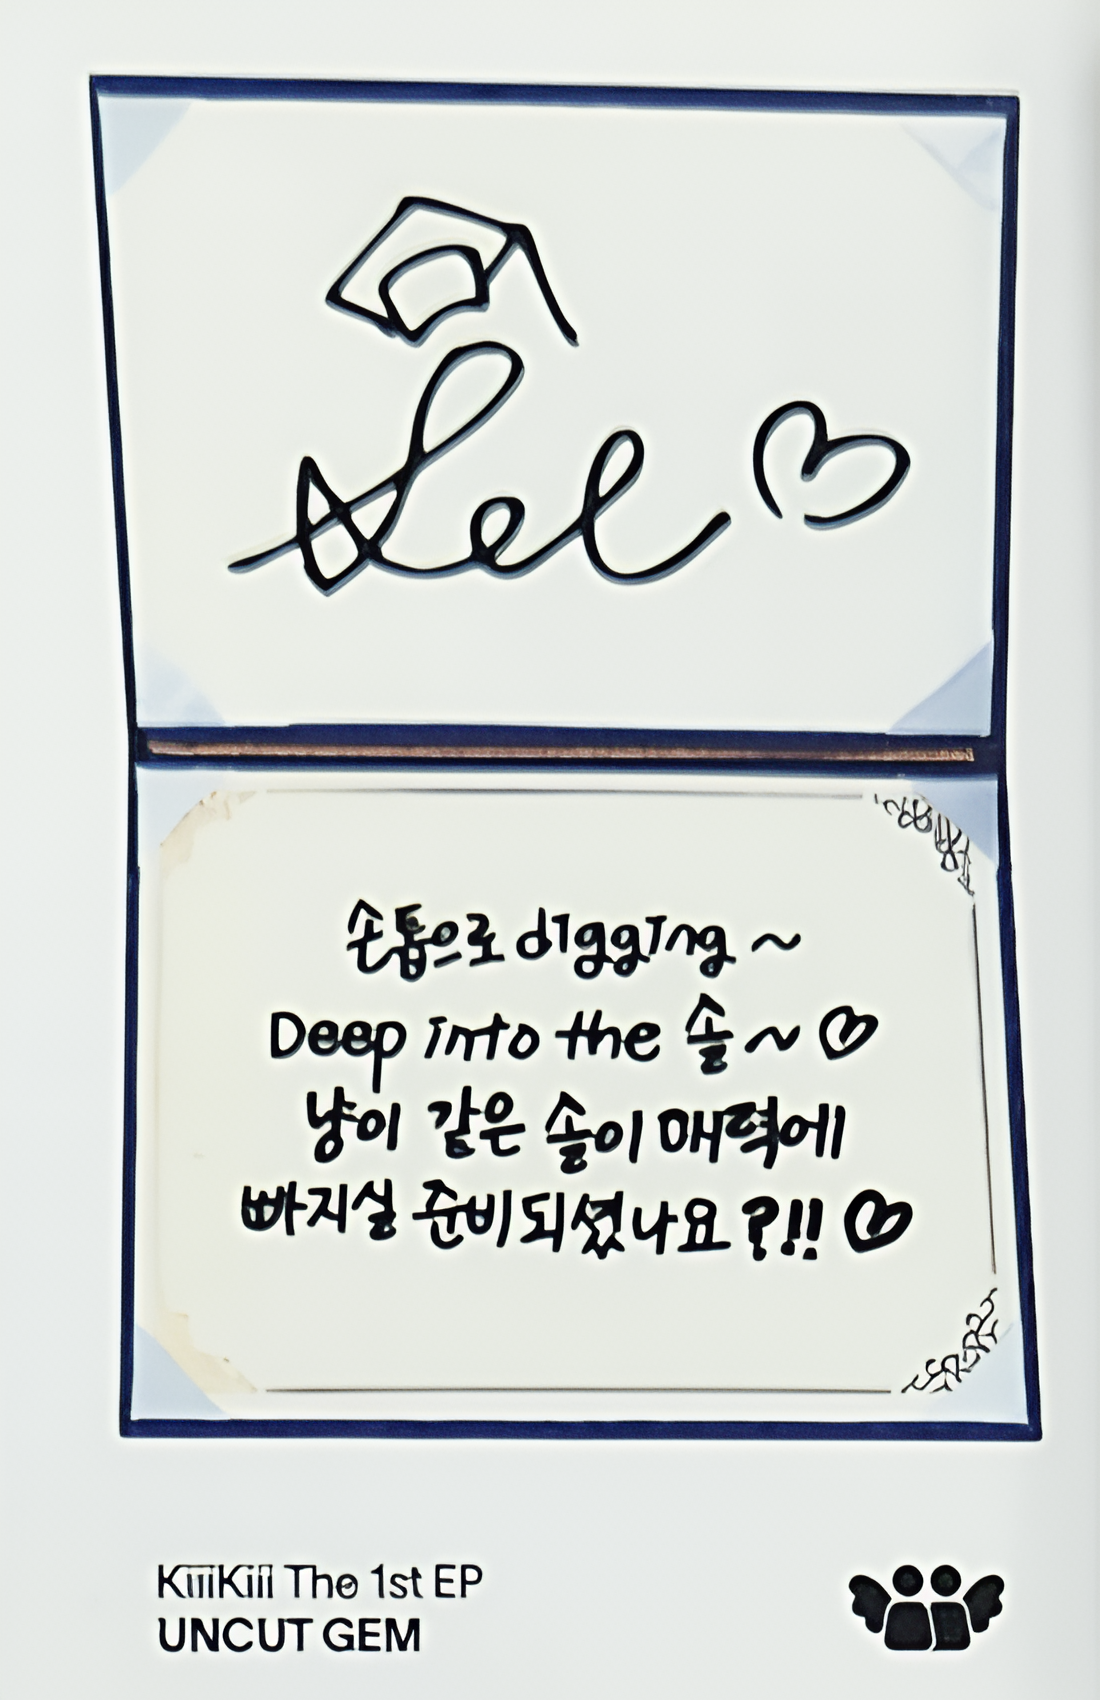 손톱으로 digging ~
Deep into the 솔~ ♡
냥이 같은 솔이 매력에
빠지실 준비되셨나요?!! ♡
KiiiKiii The 1st EP
UNCUT GEM